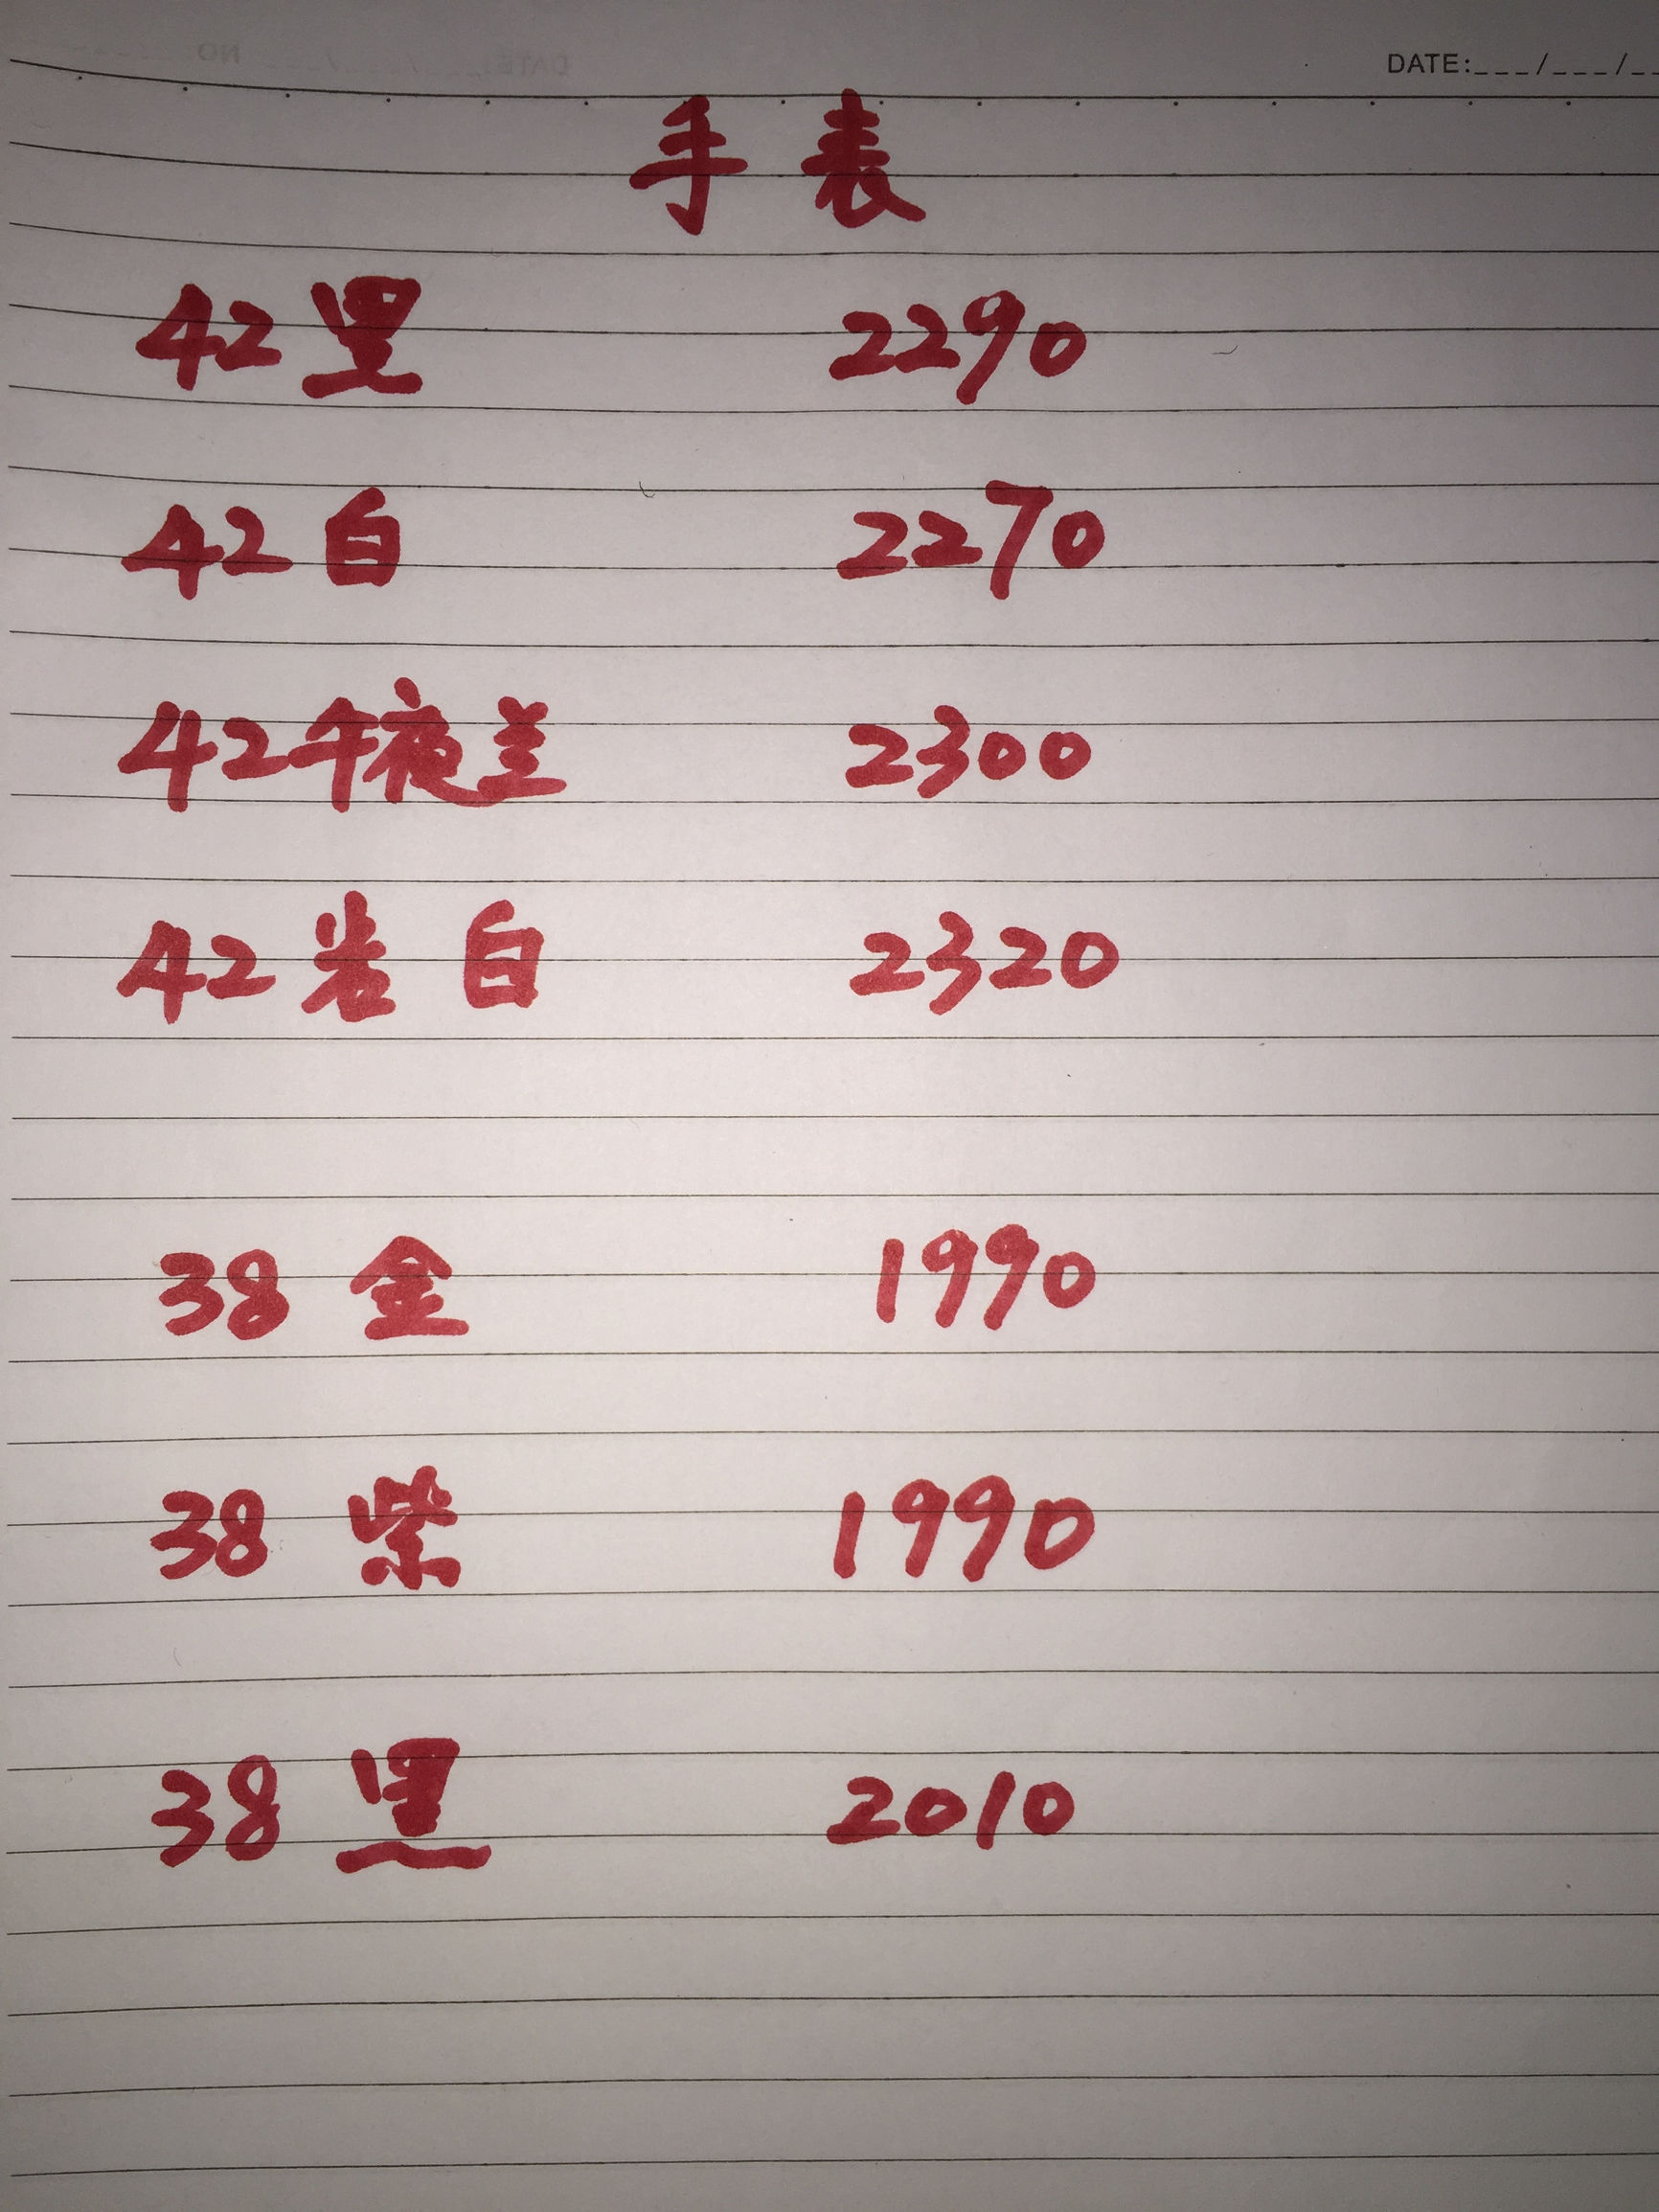 DATE:___/___/__
手表
42黑 2290
42白 2270
42午夜兰 2300
42岩白 2320
38 金 1990
38 紫 1990
38 黑 2010